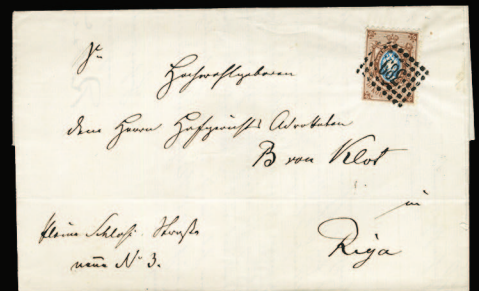 Sr.
Hochwohlgeboren
dem Herrn Hofgerichts Advokaten
B von Klot
in
Riga
kleine Schloß-Straße
neue No 3.